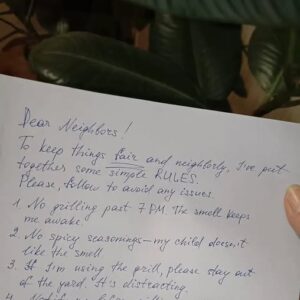 Dear Neighbors!
To keep things fair and neighborly, I've put
together some simple RULES.
Please, follow to avoid any issues
1. No grilling past 7 PM. The smell keeps
me awake.
2. No spicy seasonings—my child doesn't
like the smell
3. If I'm using the grill, please stay out
of the yard. It's distracting.
4.